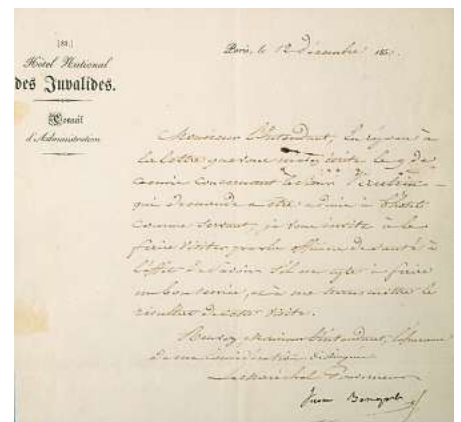 [81.]
Hôtel National
des Invalides.
Conseil
d'Administration
Paris, le 12 Décembre 185
Monsieur l'Intendant, En réponse à
la lettre que vous m'avez écrite le 9 de
ce mois concernant le
qui demande a être admis à l'hôtel
comme servant, je vous invite à le
faire visiter par les officiers de santé à
l'effet de savoir s'il est apte à faire
un bon service, et à me transmettre le
résultat de cette visite.
Recevez, Monsieur l'Intendant, l'assurance
de ma considération distinguée
Le Maréchal Gouverneur
Bonaparte